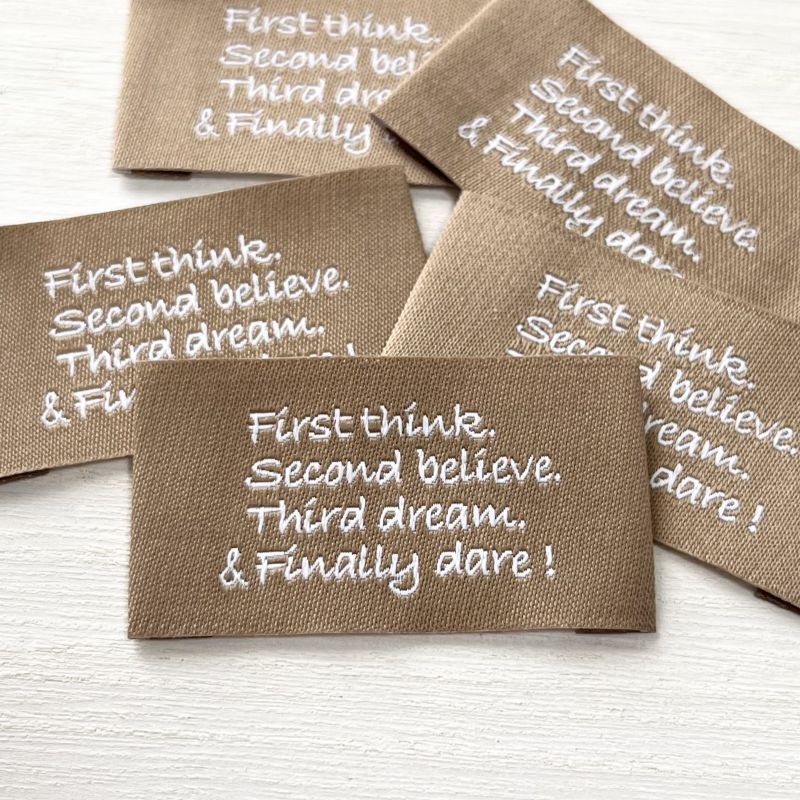 First think.
Second bel
Third dre
& Finally
First think.
Second believe.
Third dream.
& Finally dare
First think.
Second believe.
Third dream.
& Fin
First think.
believe.
ream.
dare !
First think.
Second believe.
Third dream.
& Finally dare !